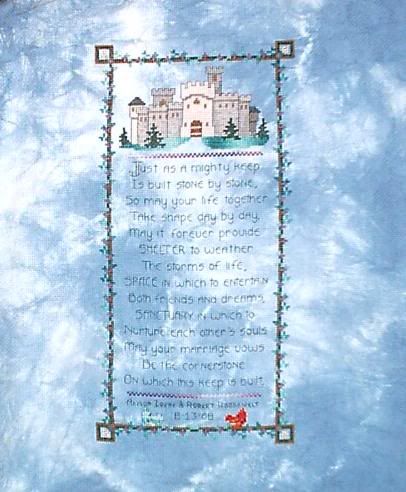 Just as a mighty keep
Is built stone by stone,
So may your life together
Take shape day by day,
May it forever provide
SHELTER to weather
The storms of life,
SPACE in which to entertain
Both friends and dreams,
SANCTUARY in which to
Nurture each other's souls
May your marriage vows
Be the cornerstone
On which this keep is built
& Robert
8·13·08